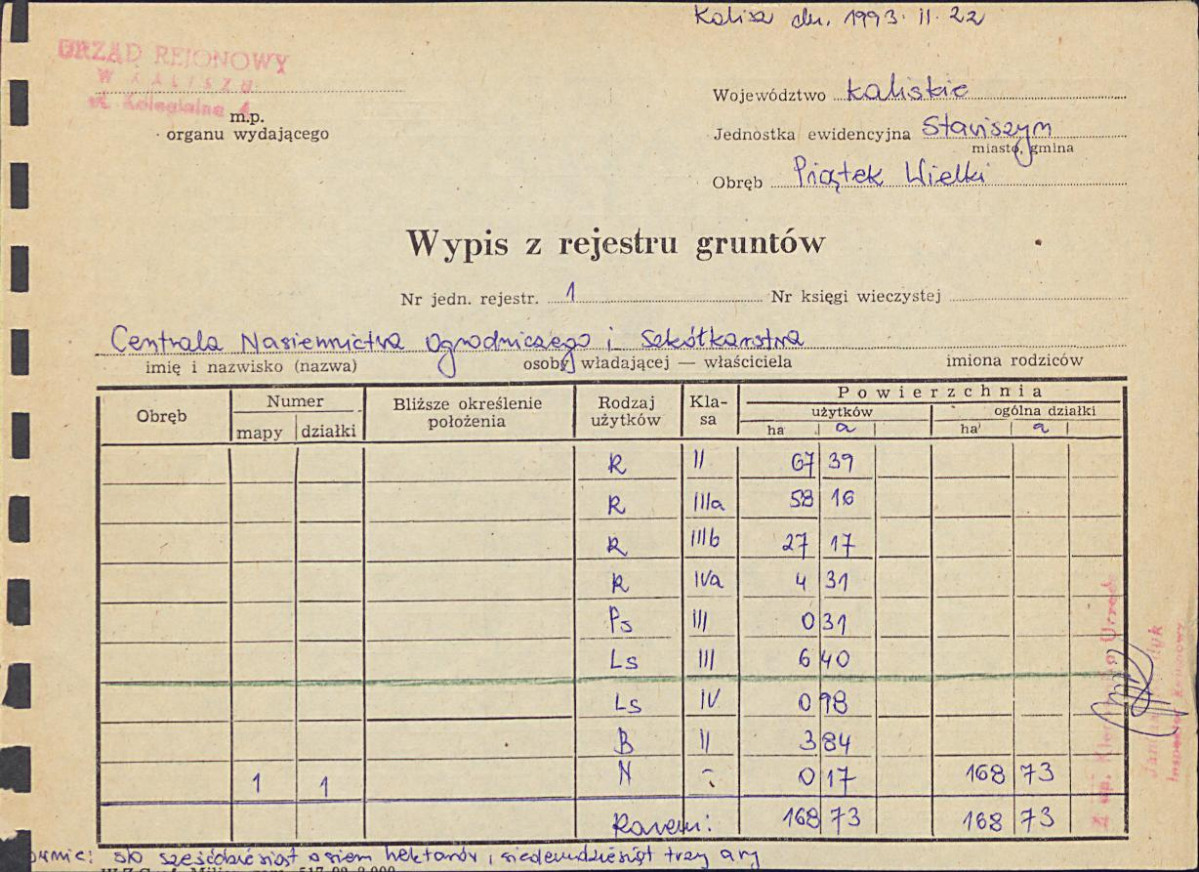 Kalisz dn. 1993.II.22
URZĄD REJONOWY
W KALISZU
ul. Kolegialna 4
m.p.
organu wydającego
Województwo kaliskie
Jednostka ewidencyjna Stawiszyn
miasto, gmina
Obręb Piątek Wielki
Wypis z rejestru gruntów
Nr jedn. rejestr. 1 Nr księgi wieczystej
Centrala Nasiennictwa Ogrodniczego i Szkółkarstwa
imię i nazwisko (nazwa) osoby władającej — właściciela imiona rodziców
Obręb Numer Bliższe określenie położenia Rodzaj użytków Kla-sa Powierzchnia
mapy działki użytków ogólna działki
ha a ha a
R II 67 39
R IIIa 58 16
R IIIb 27 17
R IVa 4 31
Ps III 0 31
Ls III 6 40
Ls IV 0 98
B II 3 84
1 1 N - 0 17 168 73
Razem: 168 73 168 73
sto sześćdziesiąt osiem hektarów i siedemdziesiąt trzy ary
Z up. Urzędu